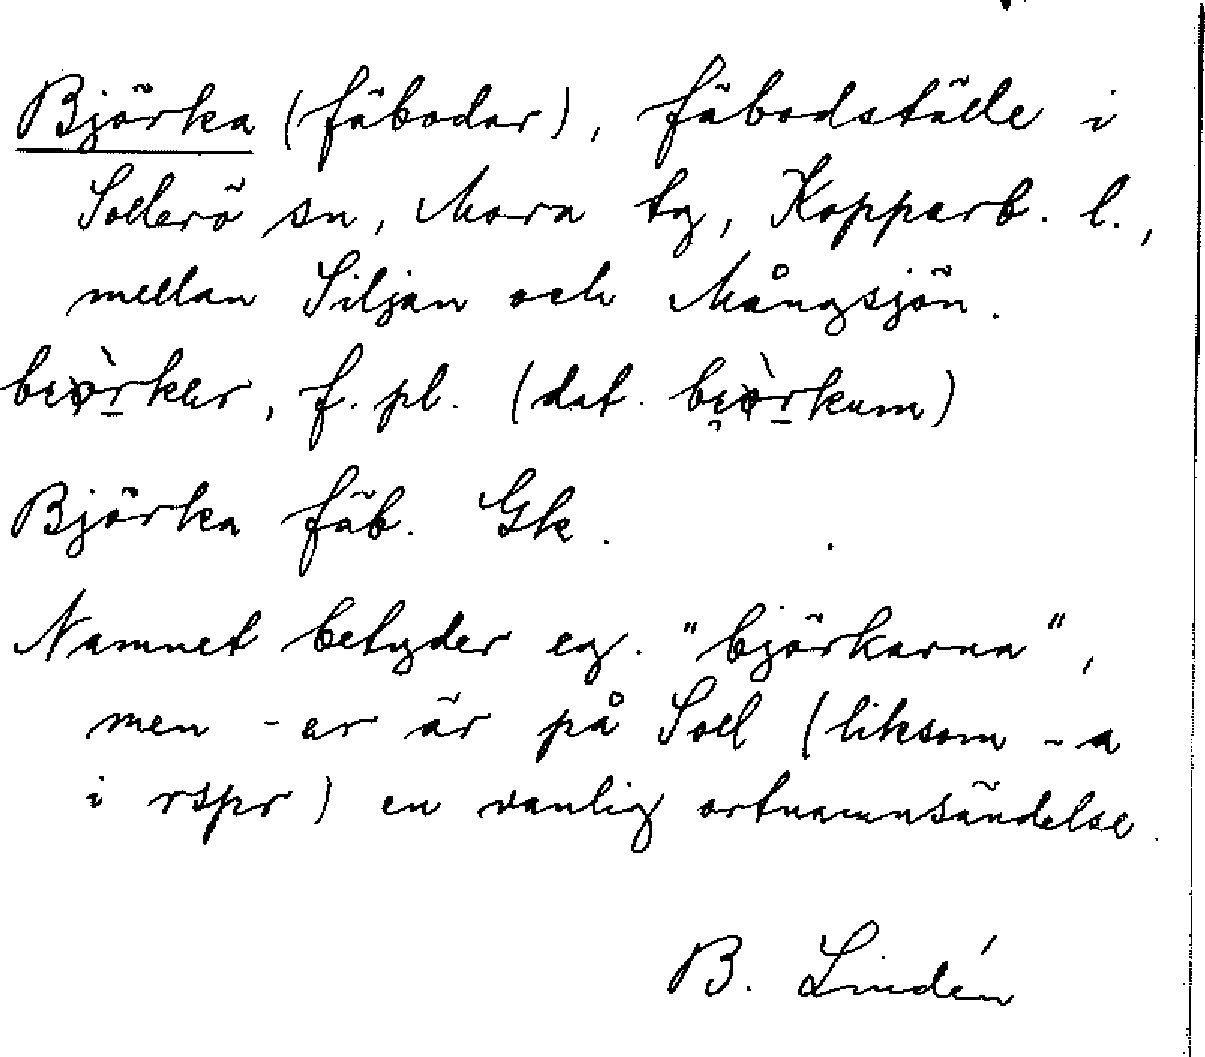 Björka (fäbodar), fäbodställe i
Sollerö sn, Mora tg, Kopparb. l.,
mellan Siljan och Mångsjön.
f. pl. (dat.
Björka fäb. Gk.
Namnet betyder eg. "björkarna",
men -er är på Soll (liksom -a
i rspr) en vanlig ortnamnsändelse.
B. Lindén